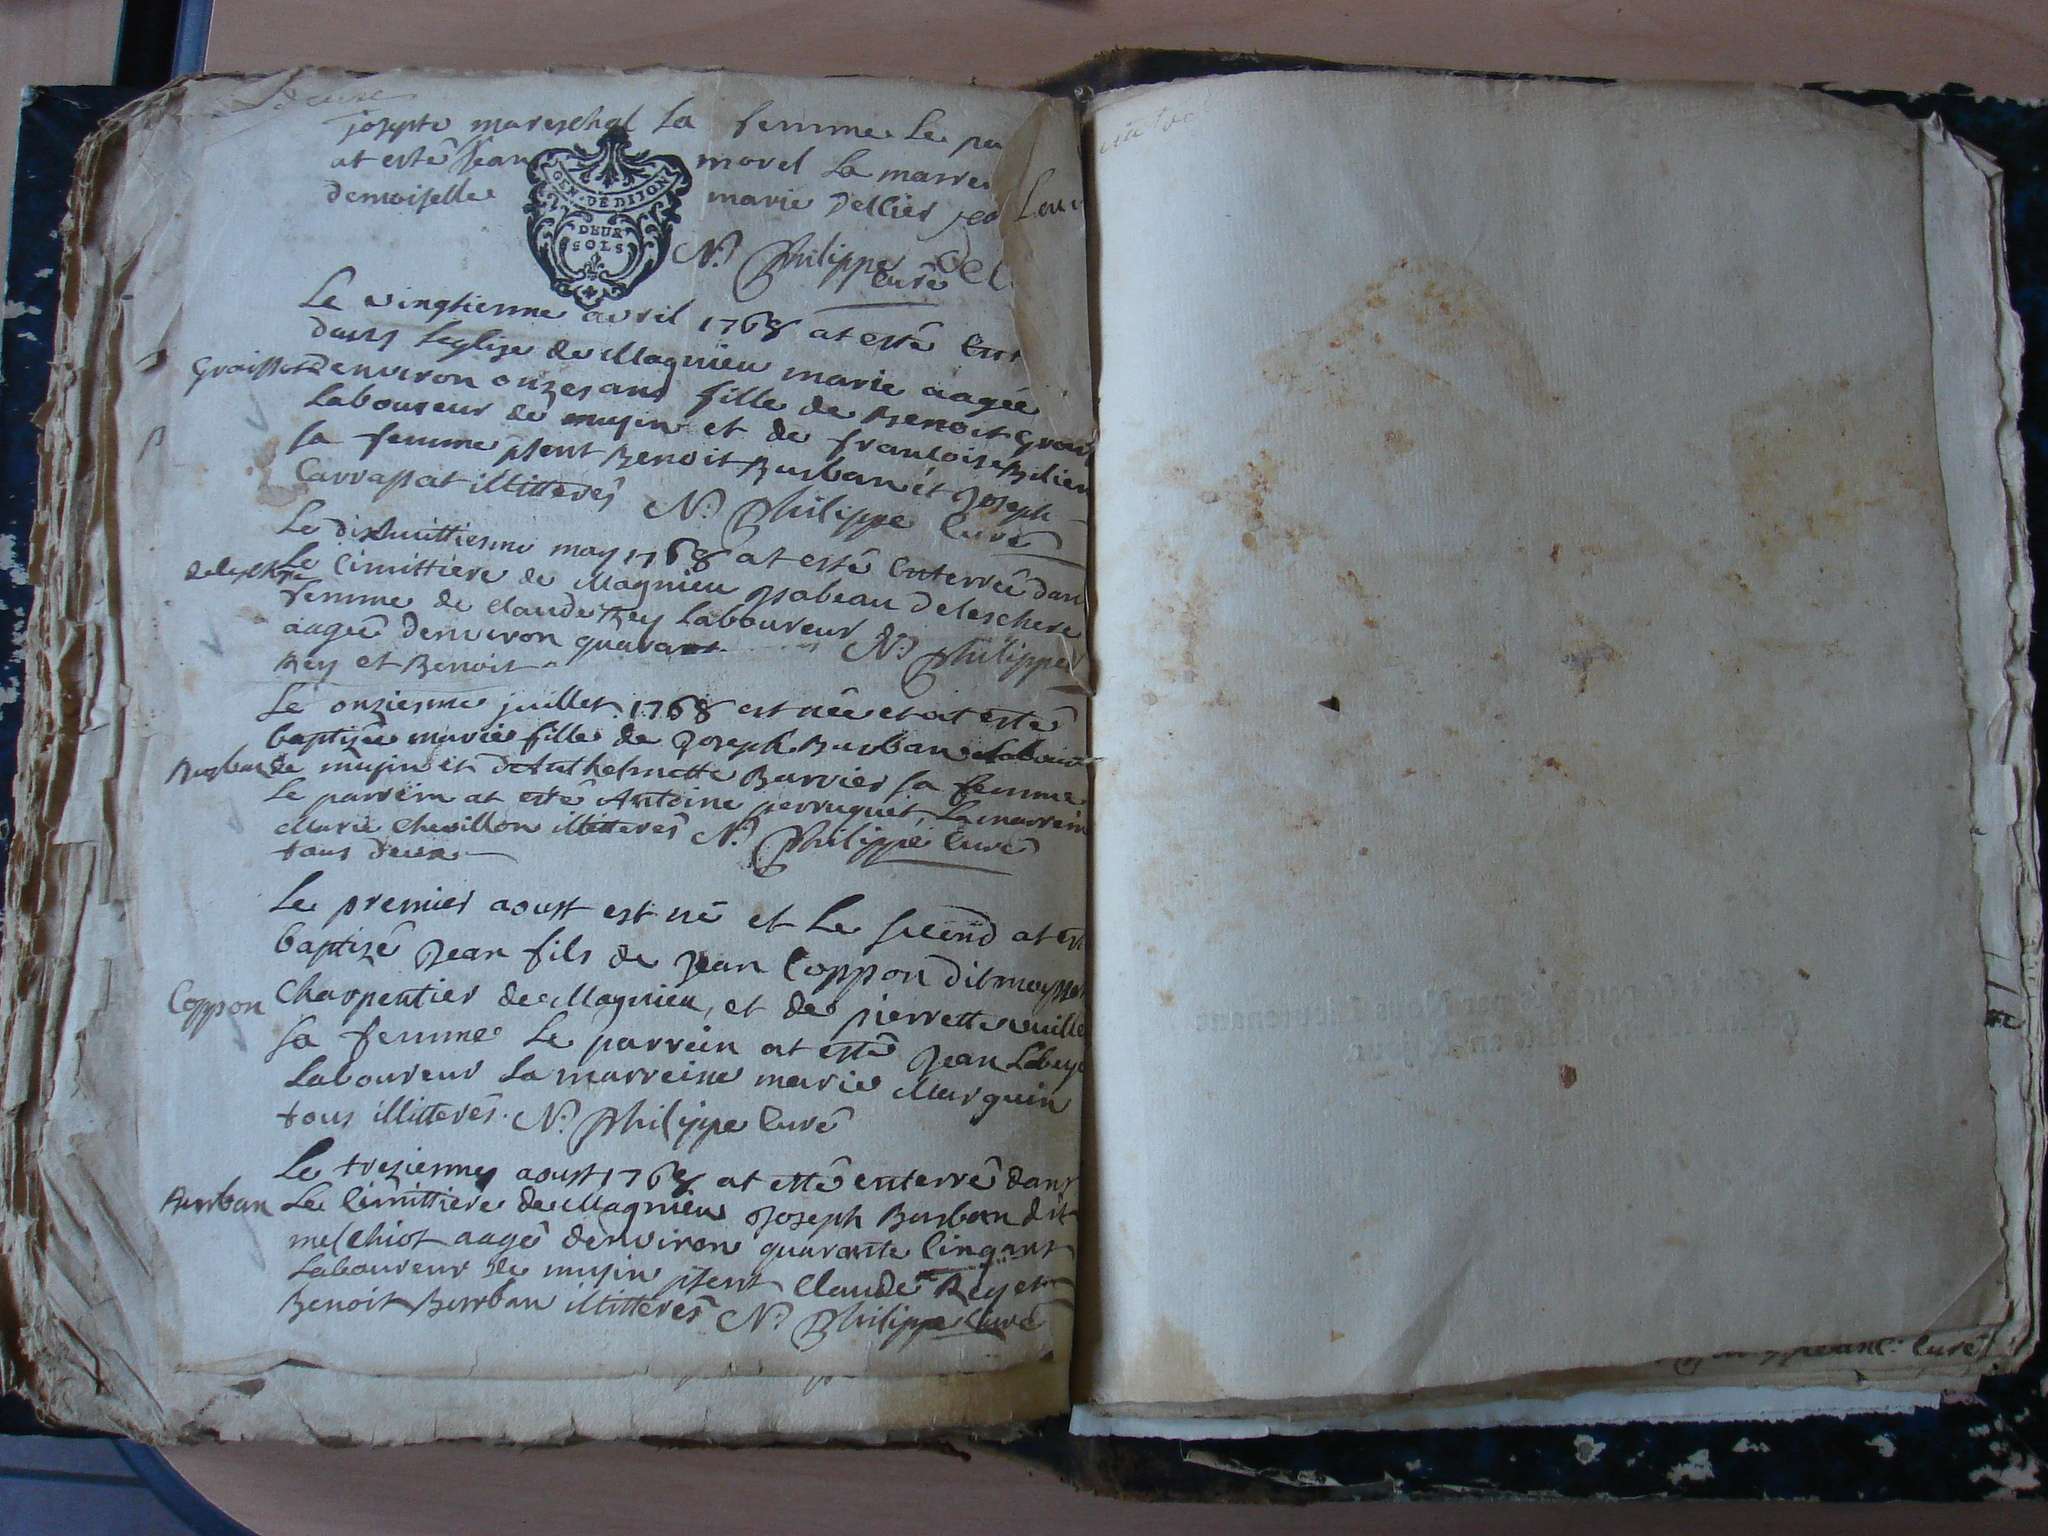 josepte mareschal sa femme Le pa
at esté Jean morel La marre
demoiselle marie Dellier
GEN. DE DIJON
DEUX
SOLS
N. Philippe curé
Le vingtiesme avril 1768 at esté Ent
dans Leglise de Magnieu marie aagée
Graissot
denviron onzes ans fille de Benoit Grais
Laboureur de musin et de francoise Bilien
sa femme psent Benoit Burban et Joseph
Carrassat illitterés N. Philippe Curé
Le dixhuittiesme may 1768 at esté Enterrée dans
Deleschere
Le Cimittiere de Magnieu ysabeau Deleschere
femme de claude Rey Laboureur de
aagée denviron quarant N. Philippe
Rey et Benoit
Le onziesme juillet 1768 est née et at esté
baptisée marie fille de Joseph Burban Labour
Burban
de musin et dAnthelmette Barvier sa femme
Le parrein at esté Antoine perruquet, La marrein
Marie Chevillon illitterés N. Philippe Curé
tous deux
Le premier aoust est né et Le second at est
baptizé Jean fils de Jean Coppon dit moysset
Coppon
Charpentier de Magnieu, et de pierrette vuille
sa femme Le parrein at esté Jean Labeye
Laboureur La marreine marie Marquin
tous illitterés. N. Philippe Curé
Le treziesme aoust 1768 at etté enterré dans
Burban
Le Cimittiere de Magnieu Joseph Burban dit
melchiot aagé denviron quarante Cinq ans
Laboureur de musin psent Claude Rey et
Benoit Burban illitterés N. Philippe Curé
Curé